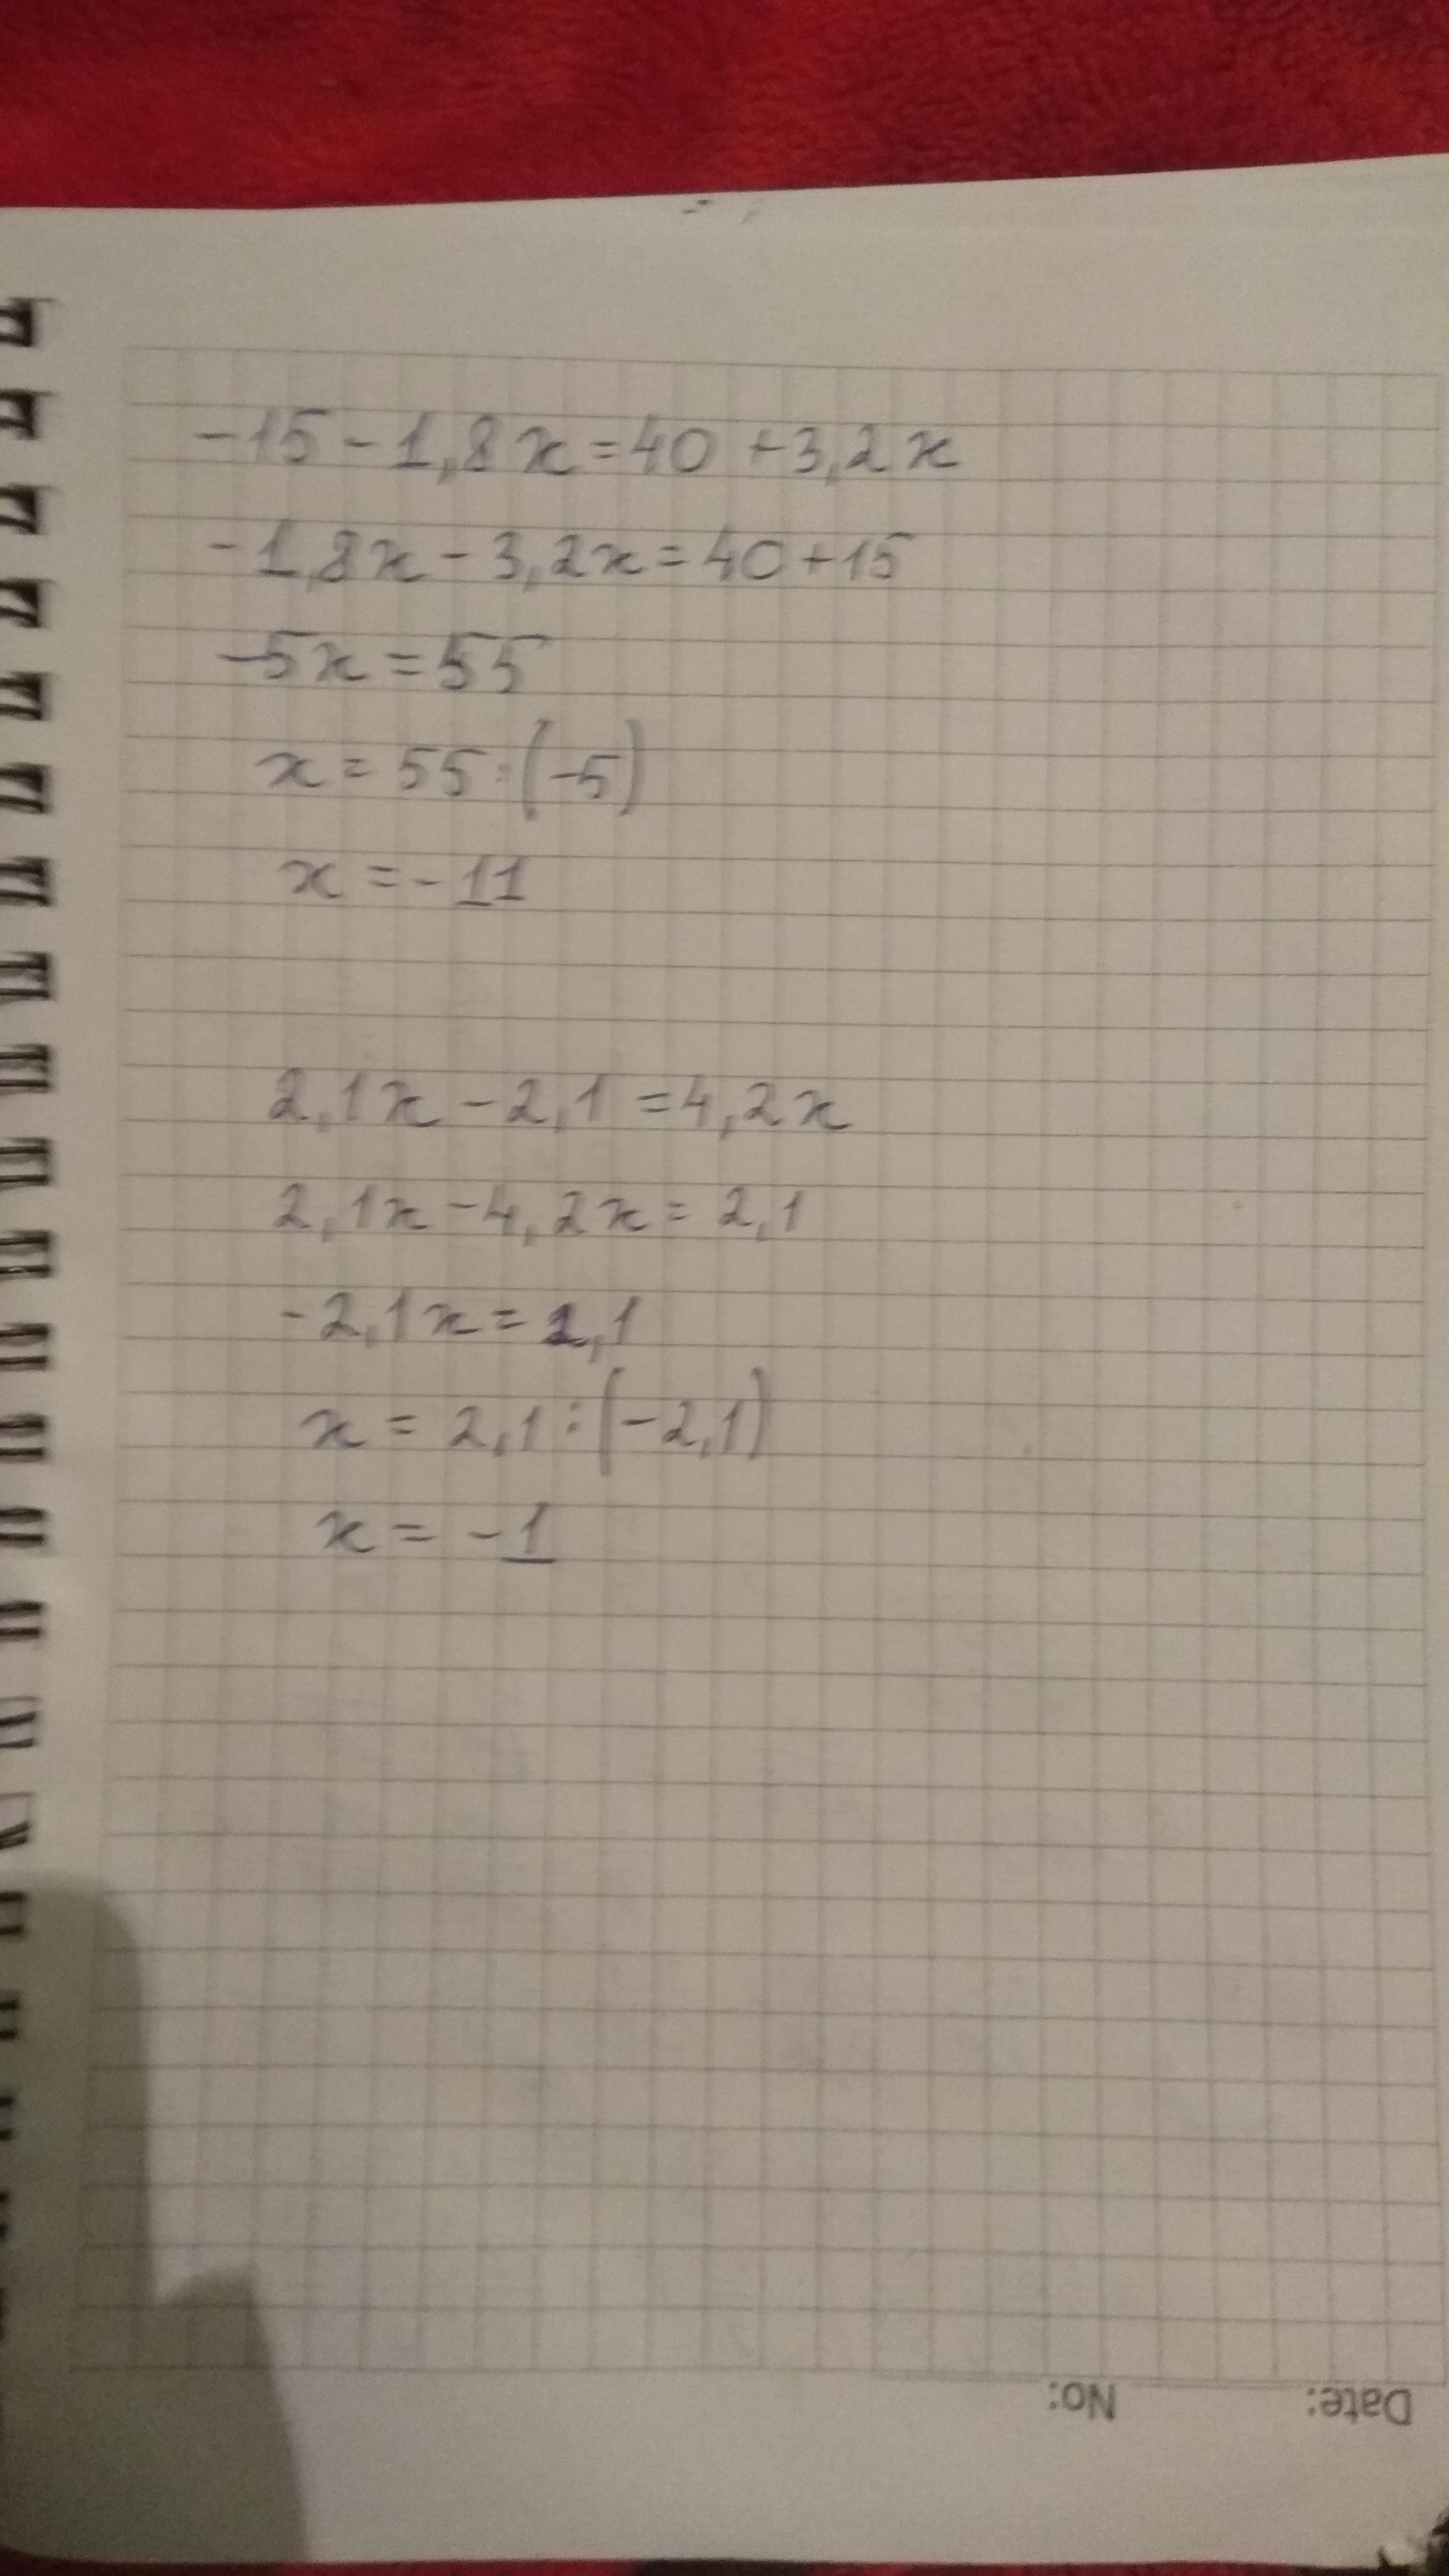 -15-1,8x=40+3,2x
-1,8x-3,2x=40+15
-5x=55
x=55:(-5)
x=-11
2,1x-2,1=4,2x
2,1x-4,2x=2,1
-2,1x=2,1
x=2,1:(-2,1)
x=-1
No:
Date: